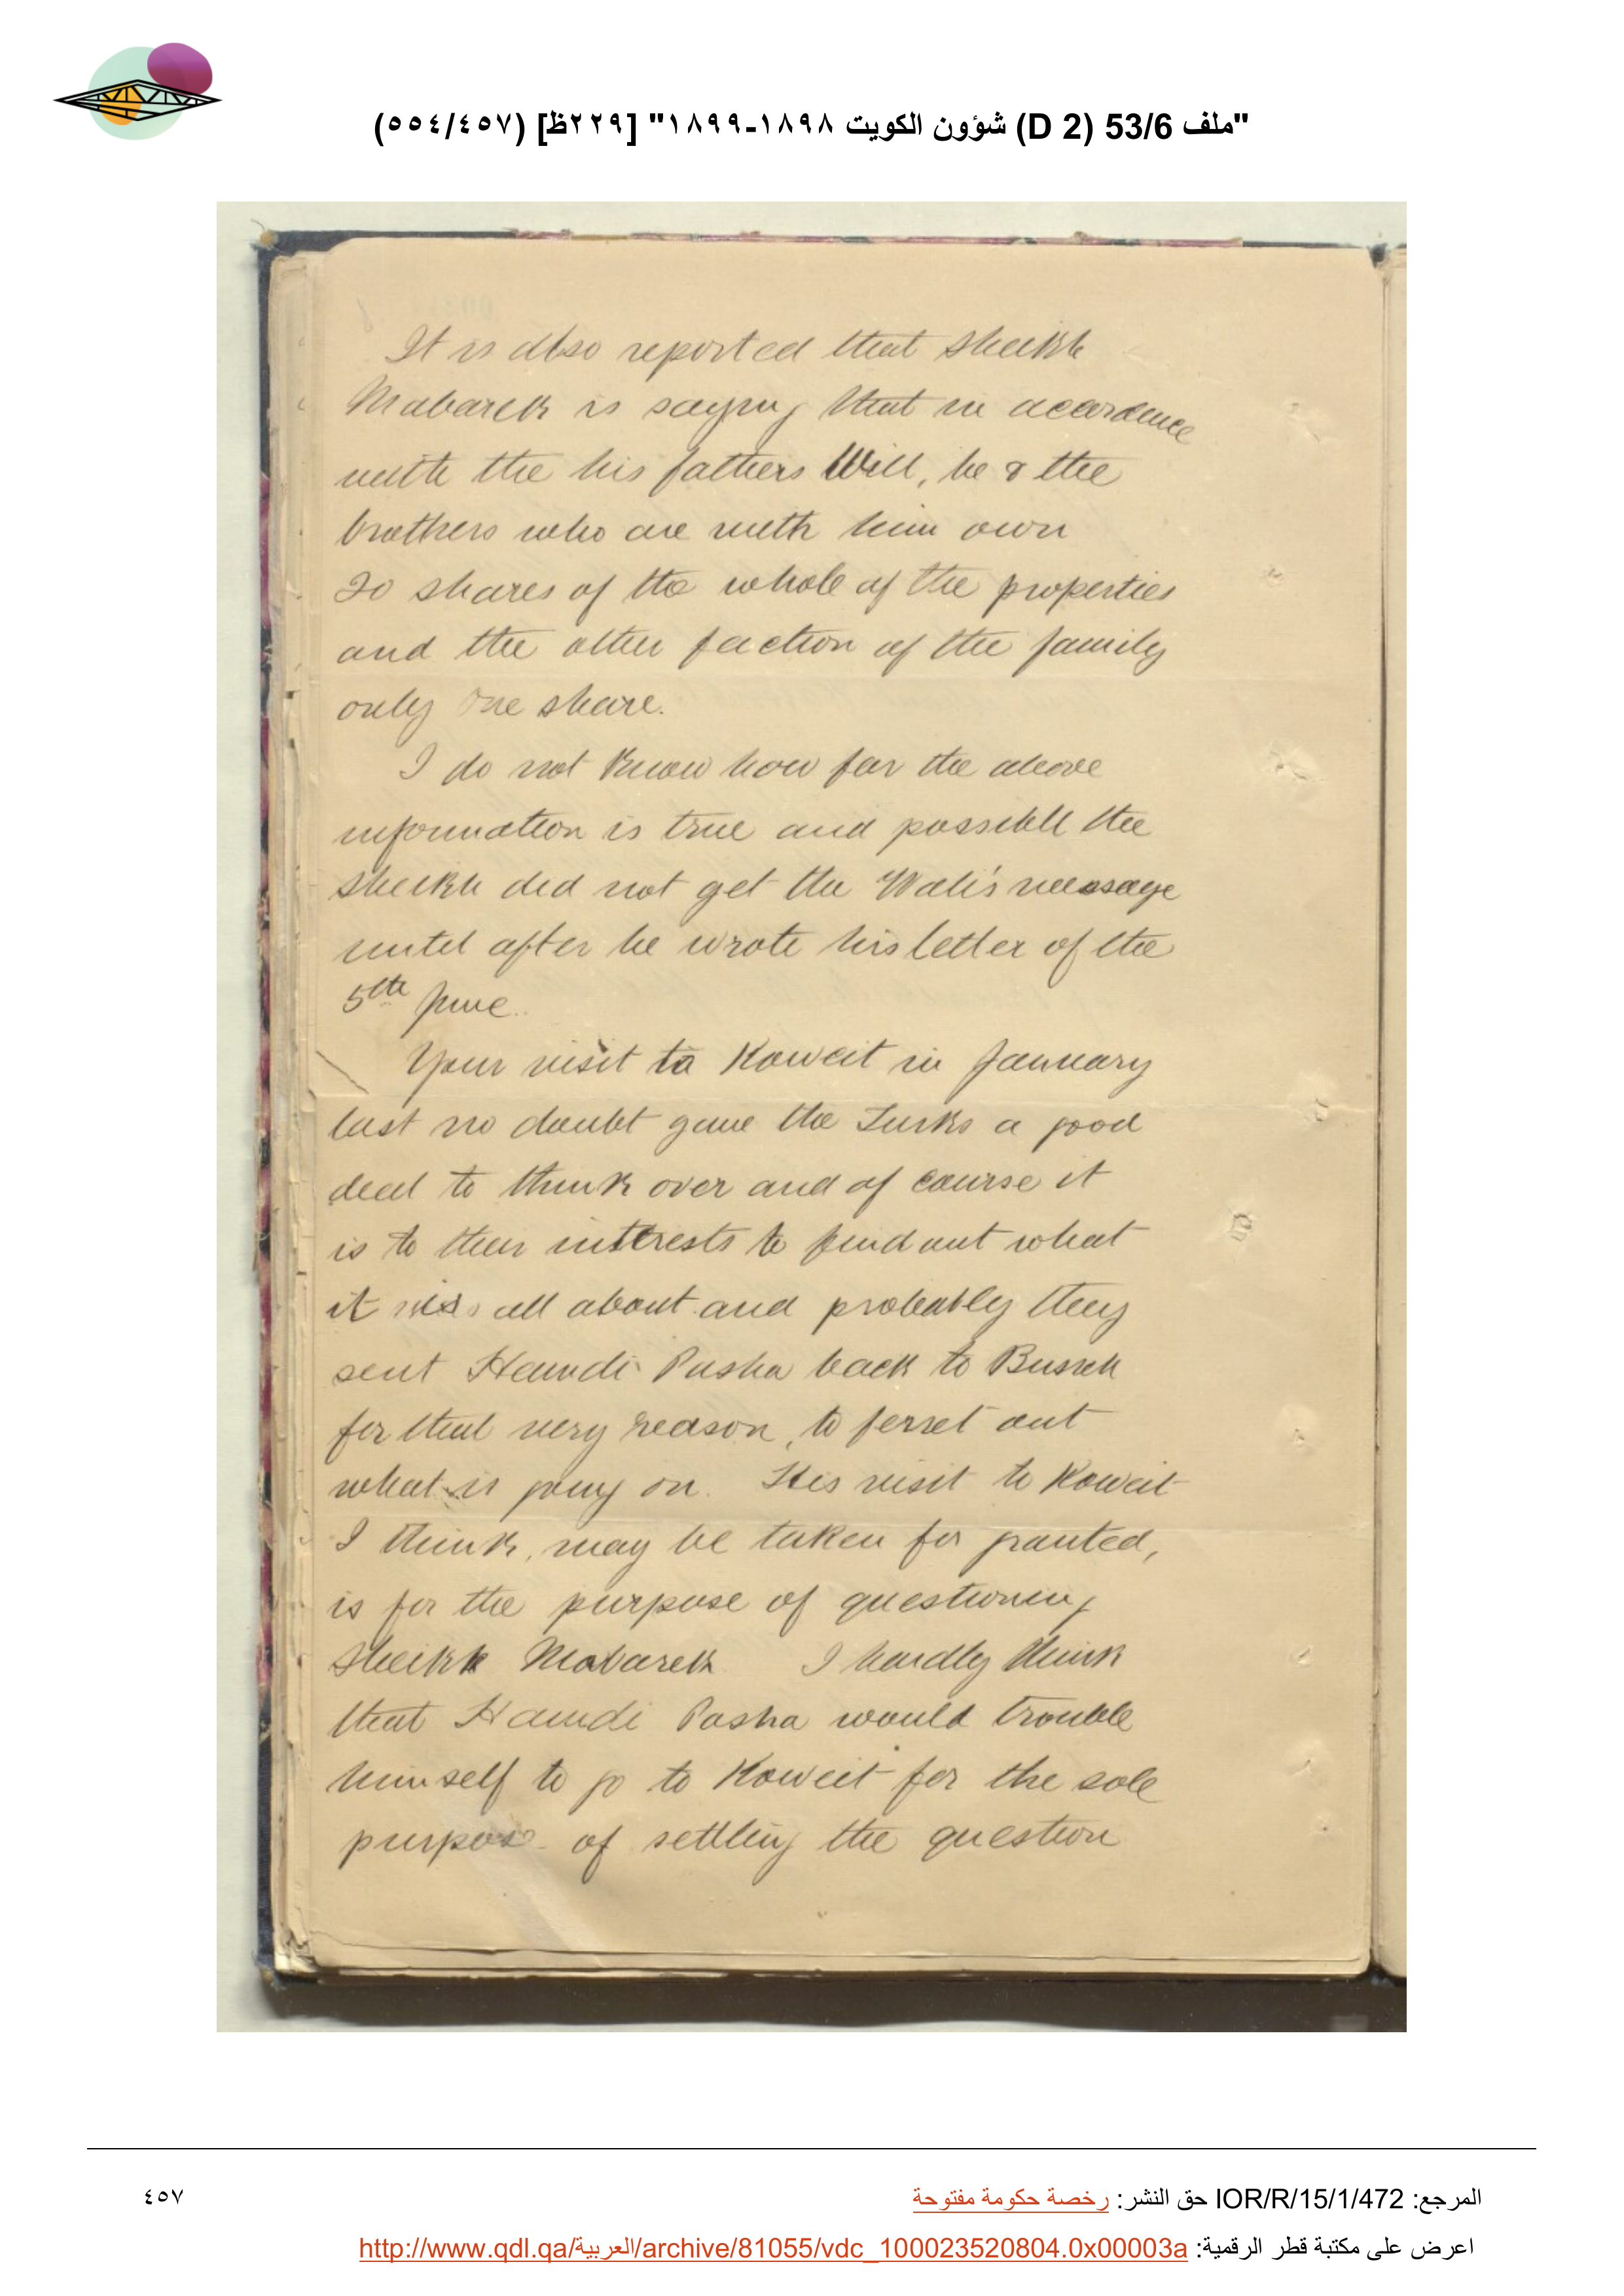 "ملف 53/6 (D 2) شؤون الكويت ١٨٩٨-١٨٩٩" [٢٢٩ظ] (٥٥٤/٤٥٧)
It is also reported that Sheikh
Mabarek is saying that in accordance
with the his fathers Will, he & the
brothers who are with him own
20 shares of the whole of the properties
and the other faction of the family
only one share.
I do not know how far the above
information is true and possibll the
Sheikh did not get the Wali's message
until after he wrote his letter of the
5th June.
Your visit to Koweit in January
last no doubt gave the Turks a good
deal to think over and of course it
is to their interests to find out what
it was all about and probably they
sent Hamdi Pasha back to Busreh
for that very reason, to ferret out
what is going on. His visit to Koweit
I think, may be taken for granted,
is for the purpose of questioning
Sheikh Mabarek. I hardly think
that Hamdi Pasha would trouble
himself to go to Koweit for the sole
purpose of settling the question
المرجع: IOR/R/15/1/472 حق النشر: رخصة حكومة مفتوحة
٤٥٧
اعرض على مكتبة قطر الرقمية: http://www.qdl.qa/العربية/archive/81055/vdc_100023520804.0x00003a